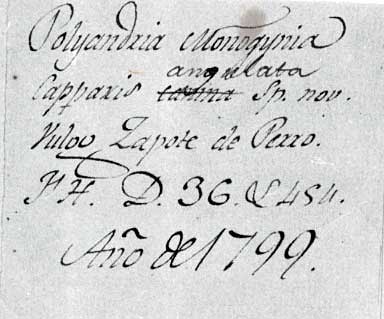 Polyandria Monogynia
angulata
Capparis Sp. nov.
Vulgo Zapote de Perro.
F. H. D. 36. L 454.
Año de 1799.